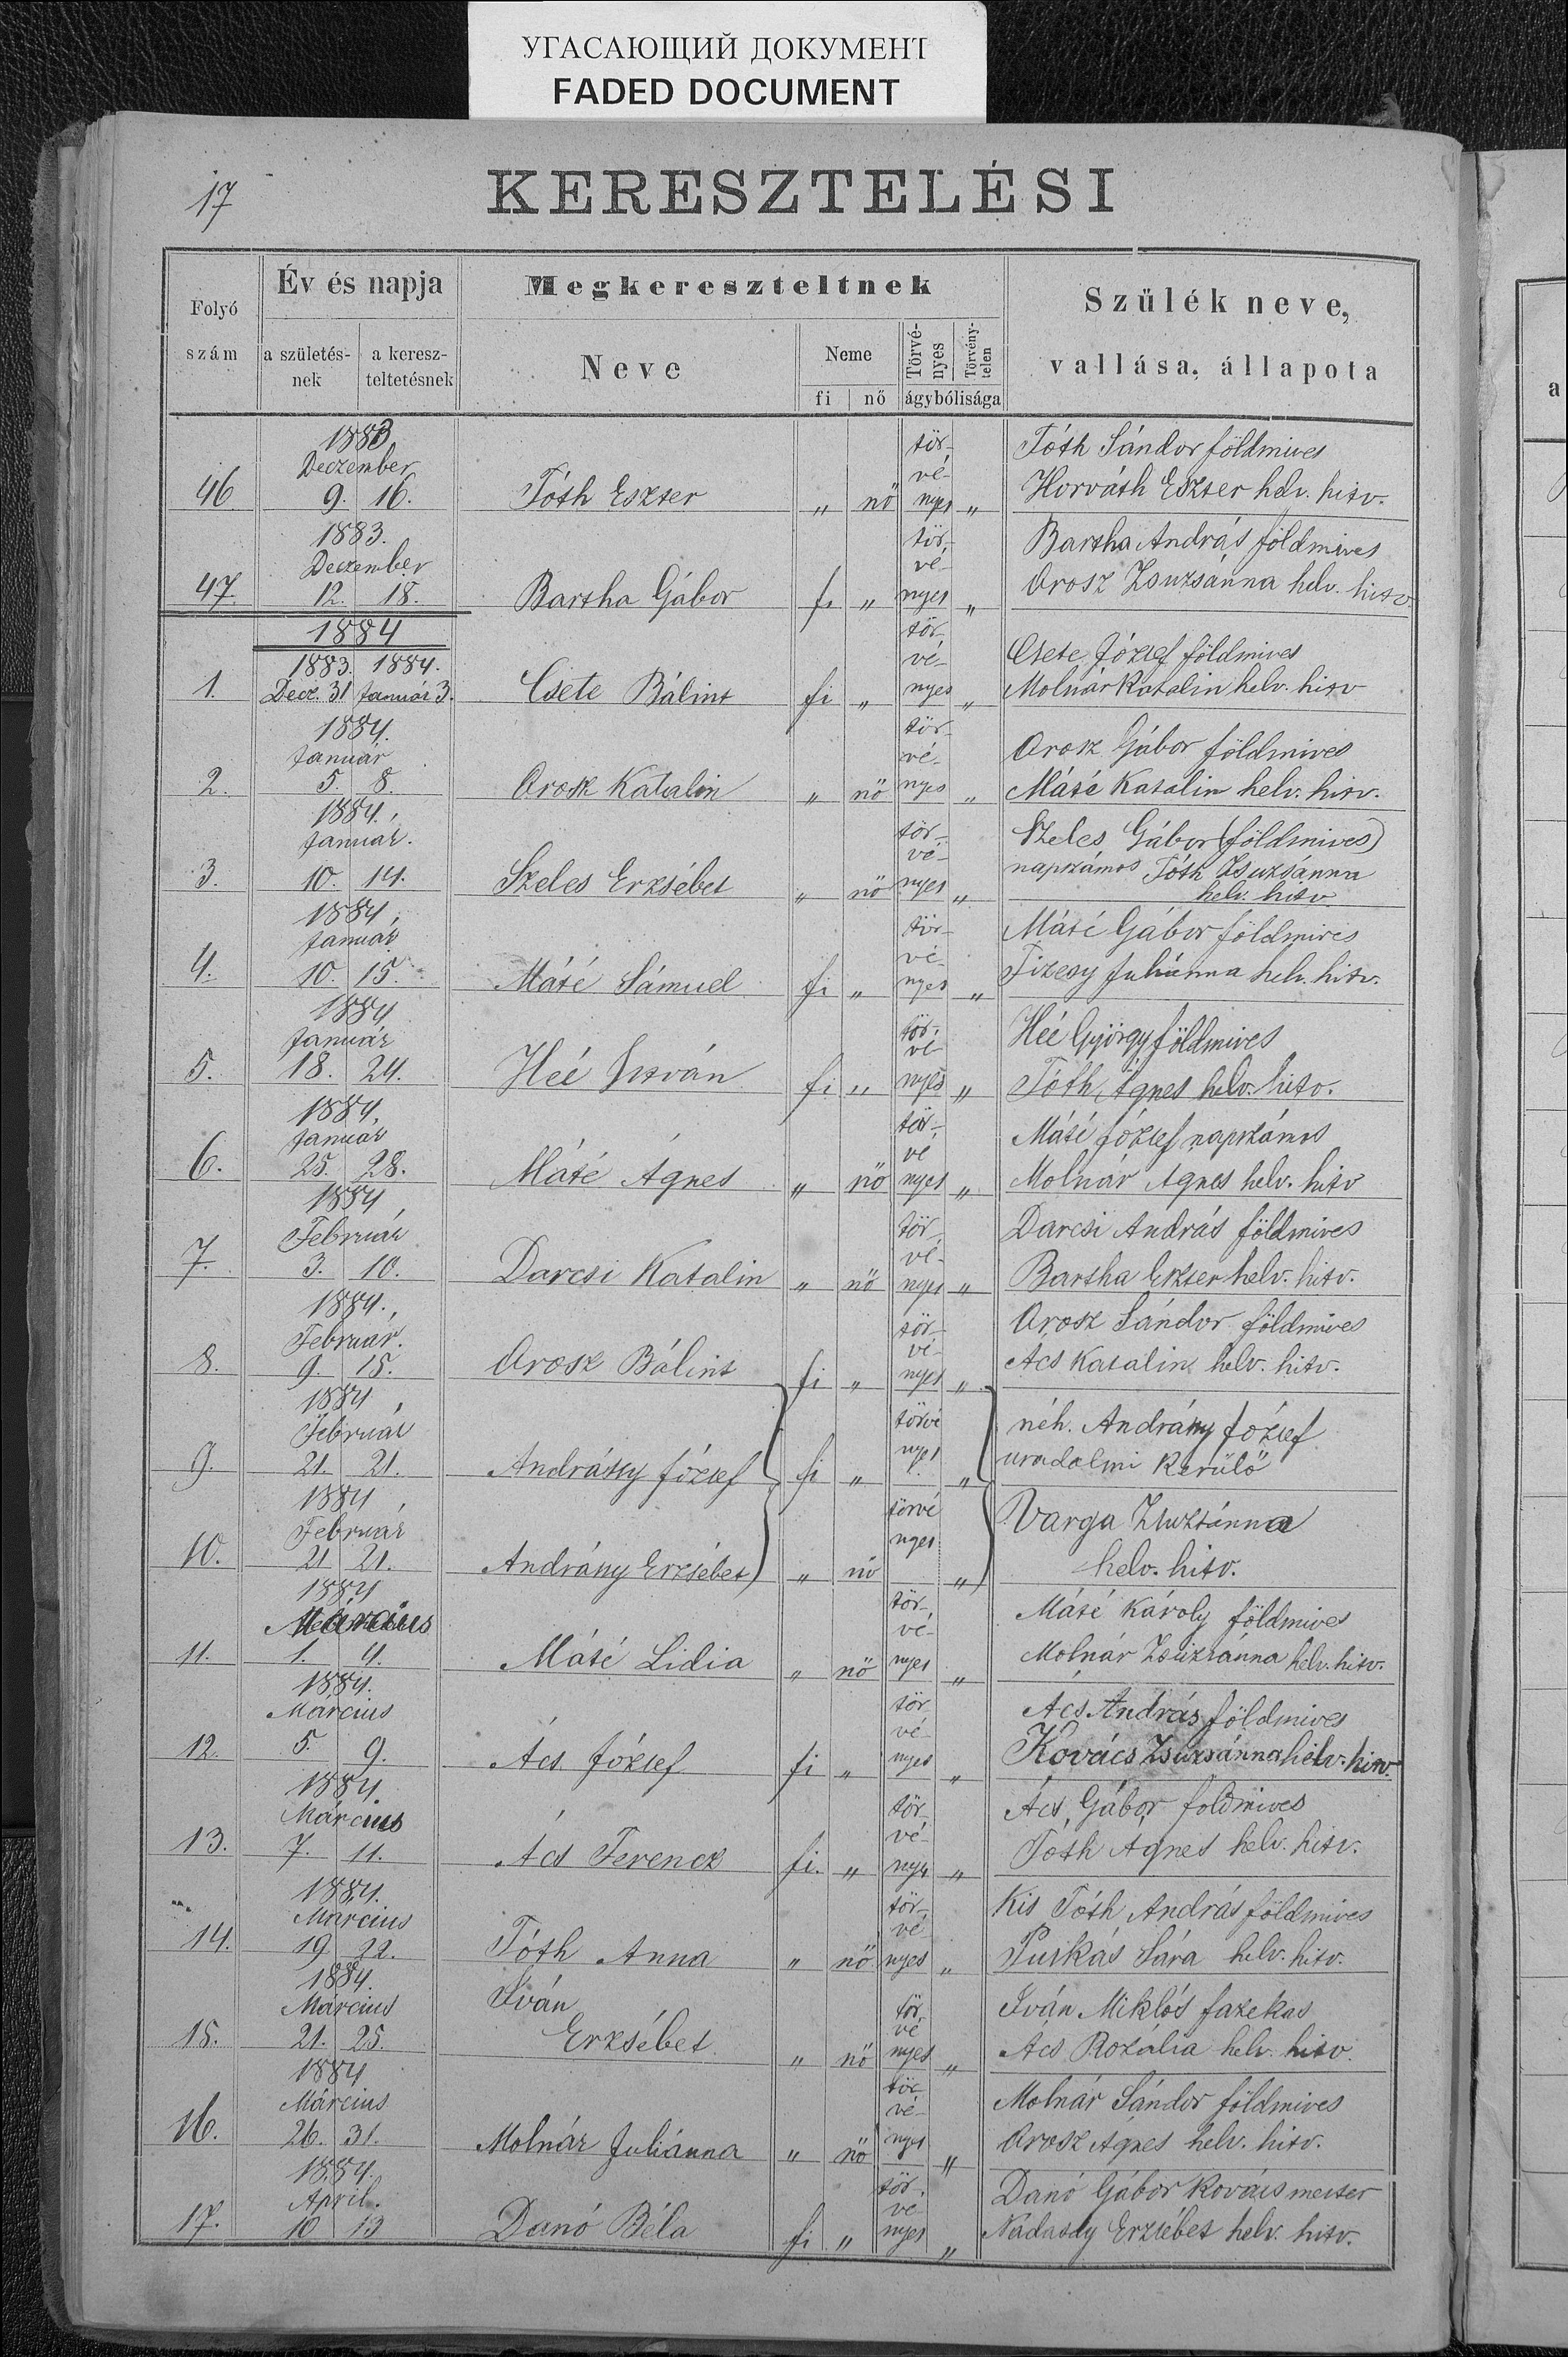 УГАСАЮЩИЙ ДОКУМЕНТ
FADED DOCUMENT
17
KERESZTELÉSI
Folyó szám
Év és napja
a születés-nek
a keresz-teltetésnek
Megkereszteltnek
Neve
Neme
fi
nő
Törvé-nyes
Törvény-telen
ágybólisága
Szülék neve,
vallása, állapota
1883 tör- Tóth Sándor földmives
Deczember vé-
46 9. 16. Tóth Eszter „ nő nyes „ Horváth Eszter helv. hitv.
1883. tör- Bartha András földmives
Deczember vé-
47. 12. 18. Bartha Gábor fi „ nyes „ Orosz Zsuzsánna helv. hitv.
1884 tör-
1883. 1884. vé- Csete József földmives
1. Decz. 31 Január 3. Csete Bálint fi „ nyes „ Molnár Katalin helv. hitv
1884. tör-
Január vé- Orosz Gábor földmives
2. 5. 8. Orosz Katalin „ nő nyes „ Máté Katalin helv. hitv.
1884. tör- Szeles Gábor (földmives)
Január. vé- napszámos Tóth Zsuzsánna
3. 10. 14. Szeles Erzsébet „ nő nyes „ helv. hitv.
1884. tör- Máté Gábor földmives
Január vé-
4. 10. 15. Máté Sámuel fi „ nyes „ Tizesy Juliánna helv. hitv.
1884 tör- Héé György földmives
Január vé-
5. 18. 24. Héé István fi „ nyes „ Tóth Ágnes helv. hitv.
1884. tör- Máté József napszámos
Január vé
6. 25. 28. Máté Ágnes „ nő nyes „ Molnár Ágnes helv. hitv
1884 tör- Darcsi András földmives
Február vé-
7. 3. 10. Darcsi Katalin „ nő nyes „ Bartha Eszter helv. hitv.
1884. tör- Orosz Sándor földmives
Február. vé-
8. 9. 15. Orosz Bálint fi „ nyes „ Ács Katalin helv. hitv.
1884 törvé néh. Andrássy József
Február nyes uradalmi Kerülő
9. 21. 21. Andrássy József fi „ „
1884 törvé Varga Zsuzsánna
Február nyes
10. 21 21. Andrássy Erzsébet „ nő „ helv. hitv.
1884 tör- Máté Károly földmives
Március vé-
11. 1. 4. Máté Lidia „ nő nyes „ Molnár Zsuzsánna helv. hitv.
1884. tör Ács András földmives
Március vé-
12. 5. 9. Ács József fi „ nyes „ Kovács Zsuzsánna helv. hitv.
1884 tör- Ács Gábor földmives
Március vé-
13. 7. 11. Ács Ferencz fi. „ nyes „ Tóth Ágnes helv. hitv.
1884. tör- Kis Tóth András földmives
Március vé
14. 19 22. Tóth Anna „ nő nyes „ Puskás Sára helv. hitv.
1884. Iván tör Iván Miklós fazekas
Március vé
15. 21. 25. Erzsébet „ nő nyes „ Ács Rozália helv. hitv.
1884 tör- Molnár Sándor földmives
Március vé-
16. 26. 31. Molnár Juliánna „ nő nyes „ Orosz Ágnes helv. hitv.
1884. tör. Danó Gábor Kovács mester
April. vé
17. 10 13 Danó Béla fi „ nyes „ Nádasdy Erzsébet helv. hitv.